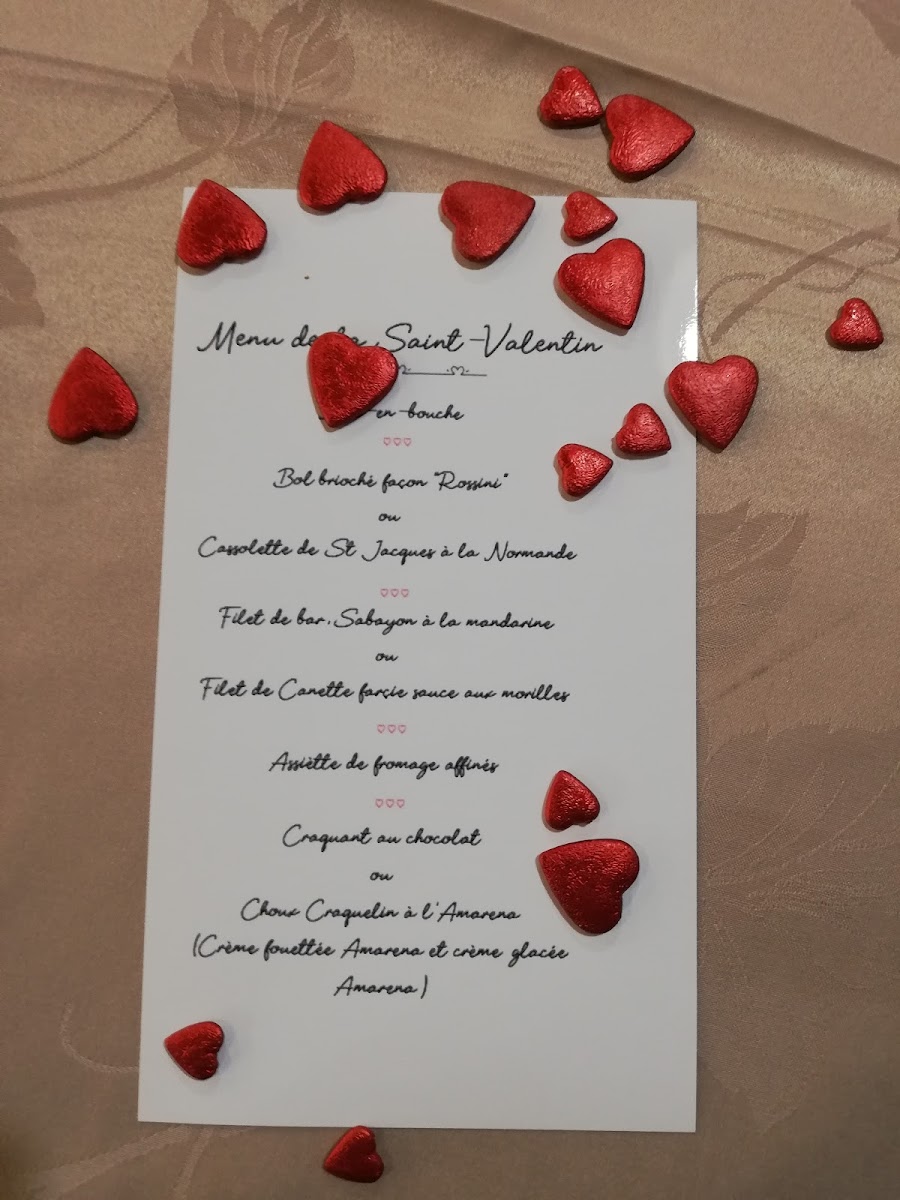 Menu de la Saint-Valentin
en-bouche
Bol brioché façon "Rossini"
ou
Cassolette de St Jacques à la Normande
Filet de bar, Sabayon à la mandarine
ou
Filet de Canette farçie sauce aux morilles
Assiètte de fromage affinés
Craquant au chocolat
ou
Choux Craquelin à l'Amarena
(Crème fouettée Amarena et crème glacée
Amarena)